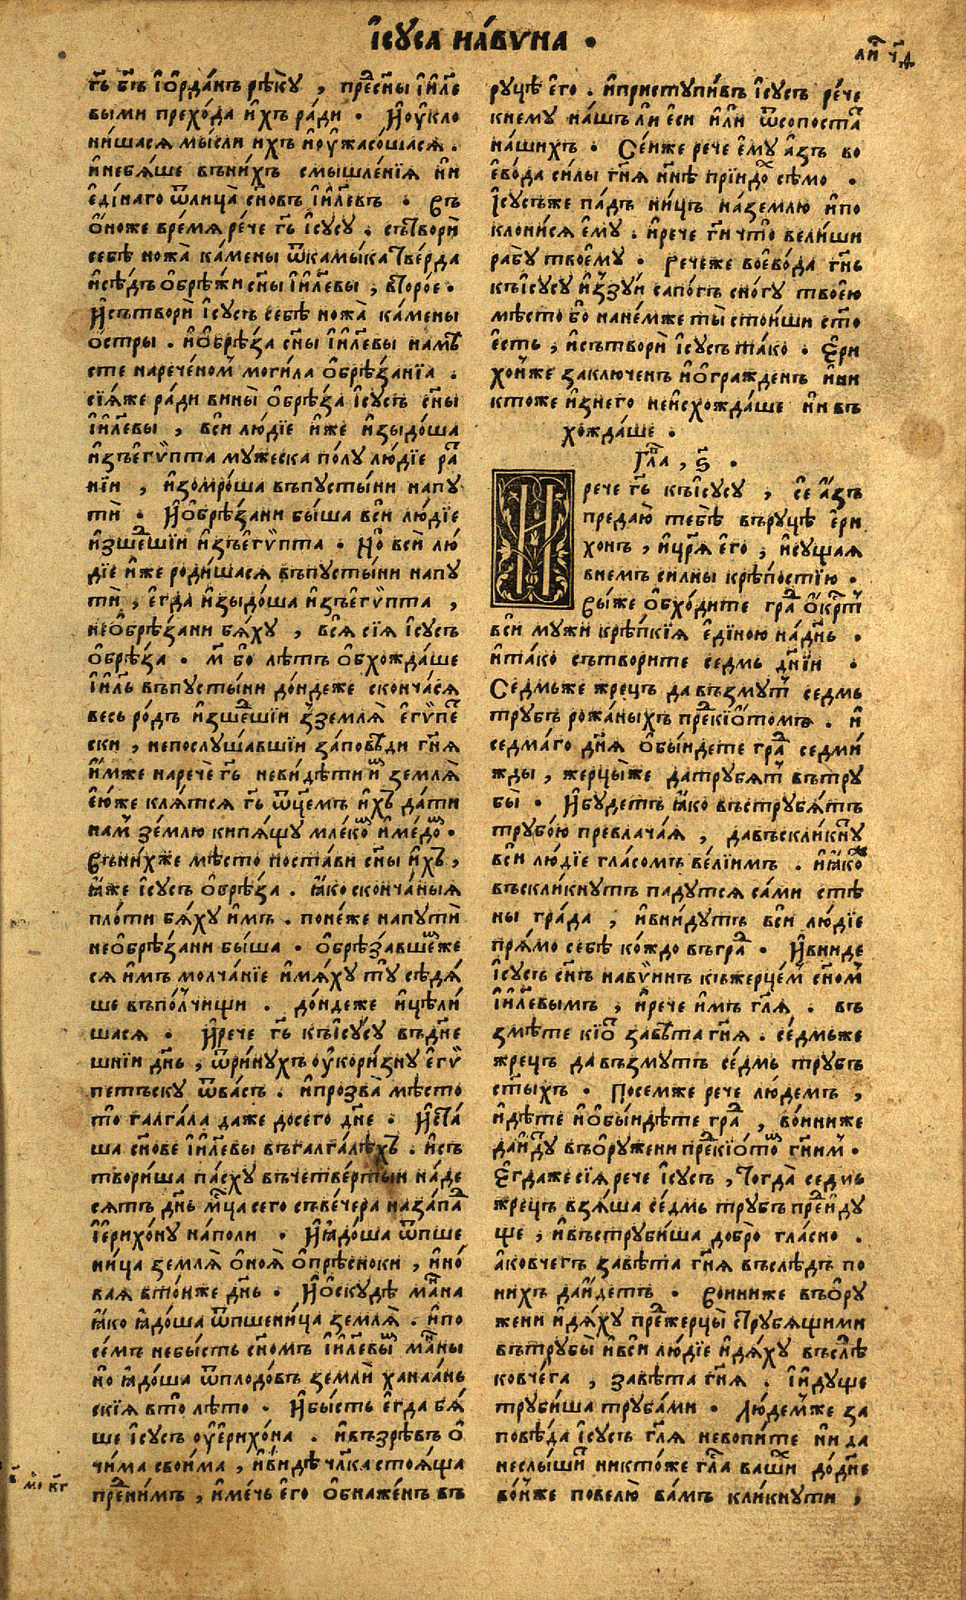 І҆сꙋса на́вѵна ·
ли҃ ч҃д
гд҃ь бг҃ъ і҆ѻ҆рда́нъ рѣ́кꙋ , пре́сн҃ы і҆и҃ле
выми прехо́да и҆́хъ ра́ди · И҆ѹ҆кло
ни́шася мы́сли ихъ и҆ѹ҆жасо́шася .
и҆небѧ́ше въни́хъ смышле́нїѧ ни
еді́наго ѿлица̀ сн҃овъ і҆и҃левъ · Въ
ѻ҆́ноже вре́мѧ ре́че гд҃ь і҆сꙋсꙋ . сътворѝ
себѣ̀ ножа̀ ка́мены ѿка́мыка тве́рда
и҆сѣ́дъ ѻ҆брѣ́жи сн҃ы і҆и҃левы , второ́е .
И҆сътворѝ і҆сꙋсъ себѣ̀ ножа̀ ка́мены
ѻ҆́стры . и҆ѻ҆брѣ́за сн҃ы і҆и҃левы намѣ
сте нарече́ном моги́ла ѻ҆брѣ́занїа .
сїѧ́же ра́ди вины̀ ѻ҆брѣ́за і҆сꙋсъ сн҃ы
і҆и҃левы , вси лю́дїе и҆́же и҆зыдо́ша
и҆зъегѵ́пта мꙋ́жеска по́лꙋ лю́дїе ра́
нїи , и҆зомро́ша въпꙋсты́ни напꙋ
ти̇̀ · И҆ѻ҆брѣ́зани бы́ша вси лю́дїе
и҆зше́шїи и҆зъегѵ́пта · Но̀ вси̇̀ лю́
дїе и҆́же роди́шася въпꙋсты́ни напꙋ
ти̇̀ , е҆гда̀ и҆зыдо́ша и҆зъегѵ́пта ,
неѻ҆брѣ́зани бѧ́хꙋ , всѧ̀ сїѧ̀ і҆сꙋсъ
ѻ҆брѣ́за · м҃ бо лѣ́тъ ѻ҆бхожда́ше
і҆и҃ль въпꙋсты́ни до́ндеже сконча́сѧ
весь ро́дъ и҆зше́шїи и҆зземлѧ̀ е҆гѵ́пе
ски , непослꙋ́шавшїи за́повѣди гн҃ѧ
и҆́мже нарече̇̀ гд҃ь неви́дѣти и҆м землѧ̀
е҆ю́же клѧ́тсѧ гд҃ь ѿце́мъ и҆́хъ да́ти
нам зе́млю кипѧ́щꙋ мле́ком и҆ме́дом ·
Въни́хже мѣ́сто поста́ви сн҃ы и҆́хъ ,
ꙗ҆́же і҆сꙋсъ ѻ҆брѣ́за . ꙗ҆́ко сконча́ныѧ
пло́ти бѧ́хꙋ и҆́мъ . поне́же напꙋти̇̀
неѻ҆брѣ́зани бы́ша · ѻ҆брѣза́вшемже
сѧ и҆́мъ молча́нїе и҆мѧ́хꙋ тꙋ̀ сѣдѧ́
ше въпо́лчищи . до́ндеже и҆цѣли́
шася · И҆рече гд҃ь къі҆сꙋсꙋ въдн҃е
шнїи дн҃ь , ѿри́нꙋхъ ѹ҆кори́знꙋ е҆гѵ́
петъскꙋ ѿва́съ . и҆прозва̀ мѣ́сто
то̀ галга́ла даже досего дн҃е . И҆ста́
ша сн҃ове і҆и҃левы въгалга́лѣхъ . и҆съ
твори́ша па́схꙋ въчетве́ртыи на́де
сѧтъ дн҃ь мц҃а сего съве́чера наза́пад
і҆ерихо́нꙋ на́поли · И҆ꙗ҆до́ша ѿпше
ни́ца землѧ̀ ѻ҆ноѧ̀ ѻ҆прѣ́сноки , и҆но́
ваѧ вто́нже дн҃ь . И҆ѻ҆скꙋдѣ̀ ма́нна
ꙗ҆́ко ꙗ҆до́ша ѿпшени́ца землѧ̀ . и҆по
се́мъ небы́сть сн҃омъ і҆и҃левым ма́нны
но̀ ꙗ҆до́ша ѿплодо́въ земли̇̀ ханаа́нь
скїѧ вто̀ лѣ́то · И҆бы́сть е҆гда̀ бѧ́
ше і҆сꙋсъ ѹ҆ерихо́на . и҆възрѣ́въ ѻ҆
чи́ма свои́ма , и҆ви́дѣ чл҃ка стоѧ́ща
пред ни́мъ , и҆ме́чь е҆го̀ ѻ҆бнаже́нъ въ
мо кг
рꙋцѣ̀ е҆го̀ . и҆пристꙋпи́въ і҆сꙋсъ ре́че
кнемꙋ̀ на́шъ ли е҆си и҆́ли ѿсопоста́т
на́шихъ · Се́нже рече е҆мꙋ̀ а҆́зъ во
е҆во́да си́лы гн҃ѧ нн҃ѣ прїидо́х сѣ́мо .
І҆сꙋсъже па́дъ ни́цъ на́землю и҆по
клони́сѧ е҆мꙋ̀ . и҆рече гд҃и что̀ вели́ши
рабꙋ̀ твоемꙋ̀ · Рече́же воево́да гн҃ь
къі҆сꙋсꙋ и҆зꙋ́й сапо́гъ сно́гꙋ твоею
мѣ́сто бо на не́мже ты̀ стои́ши ст҃о
е҆сть , и҆сътвори̇̀ і҆сꙋсъ та́ко . Е҆ри
хо́нже заключе́нъ и҆ѻ҆гражде́нъ и҆ни
кто́же и҆зне́го неи҆схожда́ше ни въ
хожда́ше .
Гла , ѕ҃ .
И рече гд҃ь къі҆сꙋсꙋ , се̇̀ а҆́зъ
предаю̀ тебѣ̀ върꙋ́цѣ е҆ри
хо́нъ , и҆цр҃ѧ е҆го̀ , и҆сꙋ́щаѧ
внемъ си́лны крѣ́постїю .
Вы́же ѻ҆бходи́те гра́д ѻ҆́крⷭтъ
вси̇̀ мꙋжи крѣ́пкїѧ е҆ді́ною на́дн҃ь .
и҆та́ко сътвори́те се́дмь дн҃їи .
Се́дмьже жре́цъ да възмꙋ́т се́дмь
трꙋ́бъ ро́жаныхъ пре́д кїѻ҆томъ . и҆
седма́го дн҃ѧ ѻ҆бы́идете гра́д седми́
жды , жерцы́же датрꙋбѧ́т вътрꙋ
бы̀ . И҆бꙋ́детъ ꙗ҆́ко въстрꙋбѧ́тъ
трꙋбо́ю превлача́ѧ , давъскли́кнꙋт
вси̇̀ лю́дїе гла́сомъ ве́лїимъ . и҆ꙗ҆́коже
въскли́кнꙋтъ падꙋ́тсѧ са́ми стѣ
ны гра́да , и҆вни́дꙋтъ вси̇̀ лю́дїе
прѧ́мо себѣ̀ ко́ждо въгра́д . И҆вниде
і҆сꙋсъ сн҃ъ навѵ́нинъ къжерце́м сн҃ом
і҆и҃левымъ , и҆рече и҆́мъ гл҃ѧ . въ
змѣ́те кїѻ҆т завѣ́та гн҃ѧ . се́дмьже
жре́цъ да възмꙋ́тъ се́дмь трꙋ́бъ
ст҃ы́хъ · Посе́мже рече лю́демъ ,
и҆дѣ́те и҆ѻ҆бы́идѣте гра́д , во́ининже
даи҆́дꙋт въѻ҆рꙋ́жени пре́д кїѻ҆том гн҃им .
Е҆гда́же сїѧ рече і҆сꙋсъ , тогда̀ се́дмь
жре́цъ взѧ́ша се́дмь трꙋ́бъ пре́д и҆дꙋ
ще , и҆въстрꙋби́ша добро̀ гла́сно .
а҆ковче́гъ завѣ́та гн҃ѧ въслѣ́дъ по
ни́хъ даи҆́детъ . Во́инниже въѻ҆рꙋ
жени и҆дѧ́хꙋ пре́д жерцы̀ строубѧ́щими
вътрꙋбы̀ и҆вси̇̀ лю́дїе и҆дѧ́хꙋ въслѣ́д
ковче́га , завѣ́та гн҃ѧ . і҆и҆дꙋ́ще
трꙋби́ша трꙋба́ми · Лю́демже за
повѣ́да і҆сꙋсъ гл҃ѧ невопи́те ни да
неслы́шит никто́же гла́са ва́ших до́дн҃е
во́ньже повелю̀ ва́мъ кли́кнꙋти ,